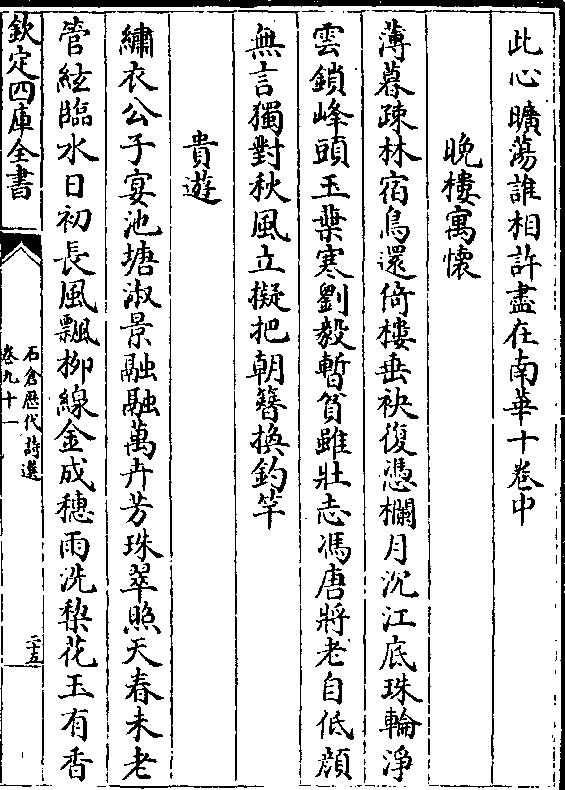 此心曠蕩誰相許盡在南華十卷中
晚樓寓懷
薄暮疎林宿鳥還倚樓垂袂復憑欄月沉江底珠輪淨
雲鎖峰頭玉葉寒劉毅暫貧雖壯志馮唐將老自低顔
無言獨對秋風立擬把朝簪換釣竿
貴遊
繡衣公子宴池塘淑景融融萬卉芳珠翠照天春未老
管絃臨水日初長風飄柳線金成穗雨洗棃花玉有香
欽定四庫全書
石倉歷代詩選
卷九十一
二十五